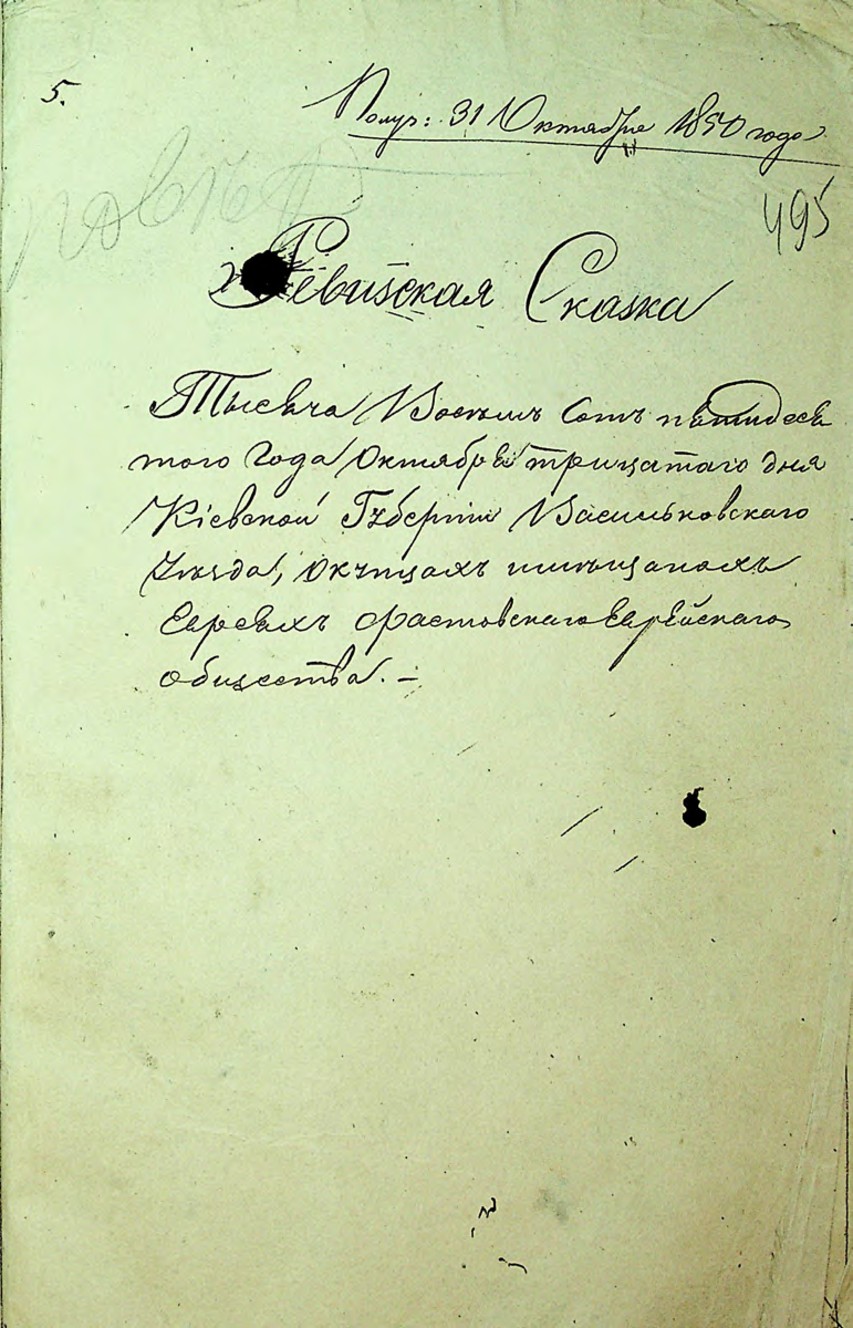 5.
Получ: 31 Октября 1850 года
495
Ревизская Сказка
Тысеча Восемь Сотъ пятидесе
того Года Октября трицатаго дня
Кіевской Губерніи Васильковскаго
Уезда, Окупцахъ имещанахъ
Евреяхъ Фастовскаго Еврейскаго
общества. –